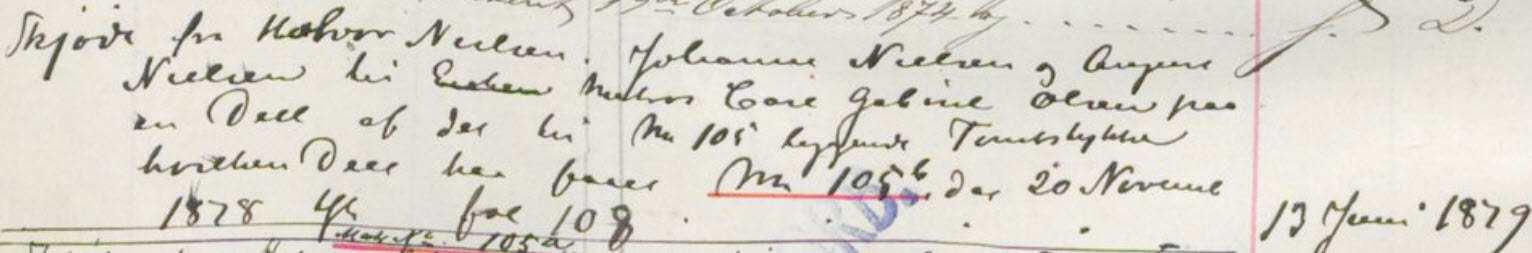 October 1874
Skjøde fra Halvor Nielsen, Johanne Nielsen og August
Nielsen til Matros Carl Gabriel Olsen paa
en Deel af det til No 105 liggende Tomtestykke
hvilken Deel har faaet No 105b, dat 20 Novembr
1878 fol 108. 13 Juni 1879
Matr No 105a